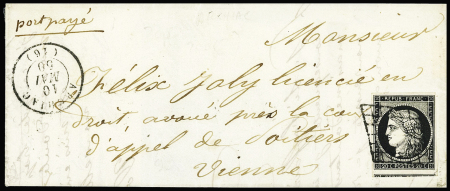 port payé
Monsieur
Félix Joly licencié en
droit, avoué près la cour
d'appel de Poitiers
Vienne
10
MAI
50
(16)
REPUB. FRANC.
20 C. POSTES 20 C.